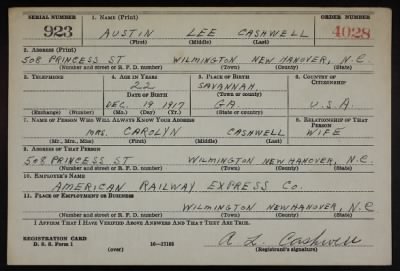 SERIAL NUMBER 1. NAME (Print) ORDER NUMBER
923 AUSTIN LEE CASHWELL 4028
(First) (Middle) (Last)
2. ADDRESS (Print)
508 PRINCESS ST WILMINGTON NEW HANOVER, N.C.
(Number and street or R. F. D. number) (Town) (County) (State)
3. TELEPHONE 4. AGE IN YEARS 5. PLACE OF BIRTH 6. COUNTRY OF CITIZENSHIP
22 SAVANNAH,
DATE OF BIRTH (Town or county)
DEC. 19 1917 GA. U.S.A.
(Exchange) (Number) (Mo.) (Day) (Yr.) (State or country)
7. NAME OF PERSON WHO WILL ALWAYS KNOW YOUR ADDRESS 8. RELATIONSHIP OF THAT PERSON
MRS. CAROLYN CASHWELL WIFE
(Mr., Mrs., Miss) (First) (Middle) (Last)
9. ADDRESS OF THAT PERSON
508 PRINCESS ST WILMINGTON NEW HANOVER, N.C.
(Number and street or R. F. D. number) (Town) (County) (State)
10. EMPLOYER'S NAME
AMERICAN RAILWAY EXPRESS CO.
11. PLACE OF EMPLOYMENT OR BUSINESS
WILMINGTON NEW HANOVER, N.C
(Number and street or R. F. D. number) (Town) (County) (State)
I AFFIRM THAT I HAVE VERIFIED ABOVE ANSWERS AND THAT THEY ARE TRUE.
REGISTRATION CARD
D. S. S. Form 1 (over) 16-17105 A. L. Cashwell
(Registrant's signature)